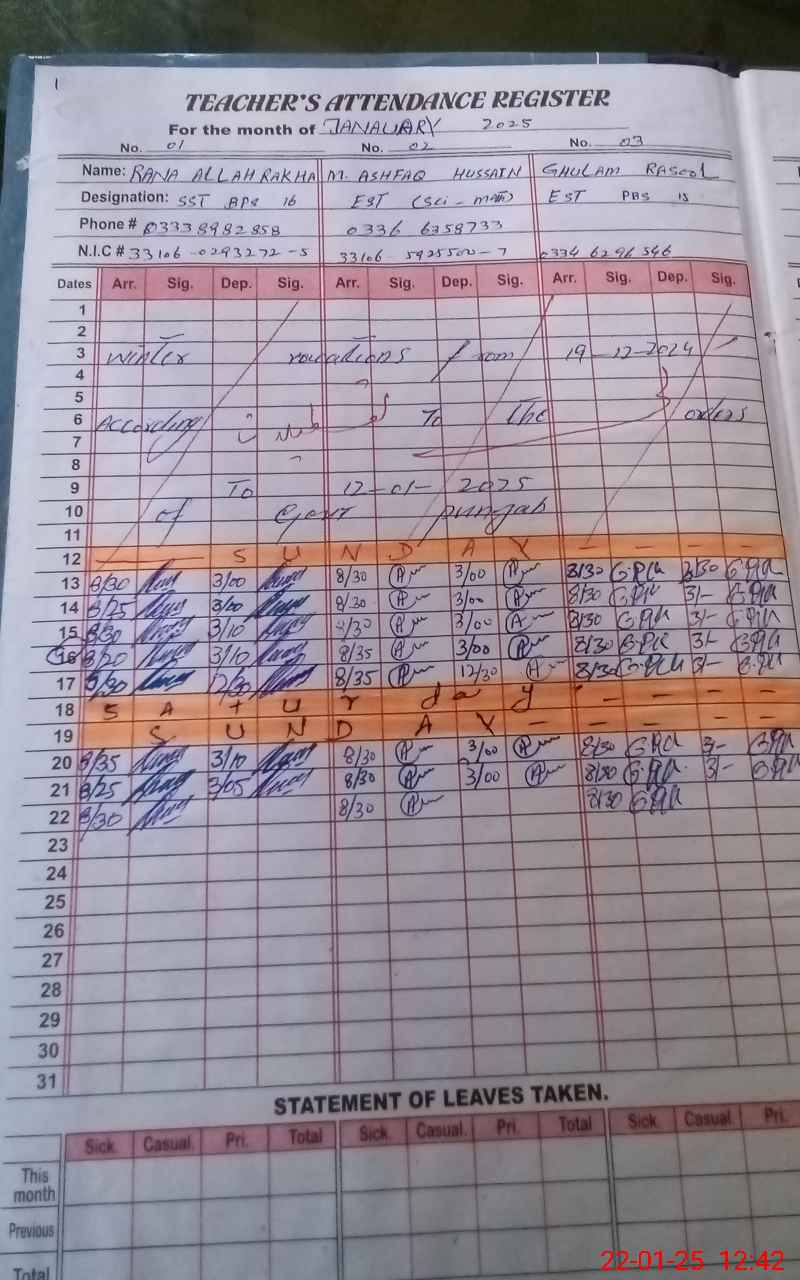 1
TEACHER'S ATTENDANCE REGISTER
For the month of JANAUARY 2025
No. 01 No. 02 No. 03
Name: RANA ALLAH RAKHA M. ASHFAQ HUSSAIN GHULAM RASOOL
Designation: SST BPS 16 EST (Sci - math) EST PBS 15
Phone # 03338982858 0336 6358733
N.I.C # 33106-0293272-5 33106-5925500-7 0334 6296546
Dates Arr. Sig. Dep. Sig. Arr. Sig. Dep. Sig. Arr. Sig. Dep. Sig.
1
2
3 Winter from 19-12-2024
4
5
6 According To The orders
7
8
9 To 12-01-2025
10 of Govt punjab
11
12 SUNDAY - - - -
13 8/30 3/00 8/30 3/00 8/30 3/30
14 8/25 3/00 8/30 3/00 8/30 3/-
15 8/30 3/10 8/30 3/00 8/30 3/-
16 8/20 3/10 8/35 3/00 8/30 3/-
17 8/30 12/30 8/35 12/30 8/30 3/-
18 SAtUrday - - - -
19 SUNDAY - - - - -
20 8/35 3/10 8/30 3/00 8/30 3/-
21 8/25 3/05 8/30 3/00 8/30 3/-
22 8/30 8/30 8/30
23
24
25
26
27
28
29
30
31
STATEMENT OF LEAVES TAKEN.
Sick. Casual. Pri. Total Sick. Casual. Pri. Total Sick. Casual. Pri.
This
month
Previous
Total
22-01-25 12:42